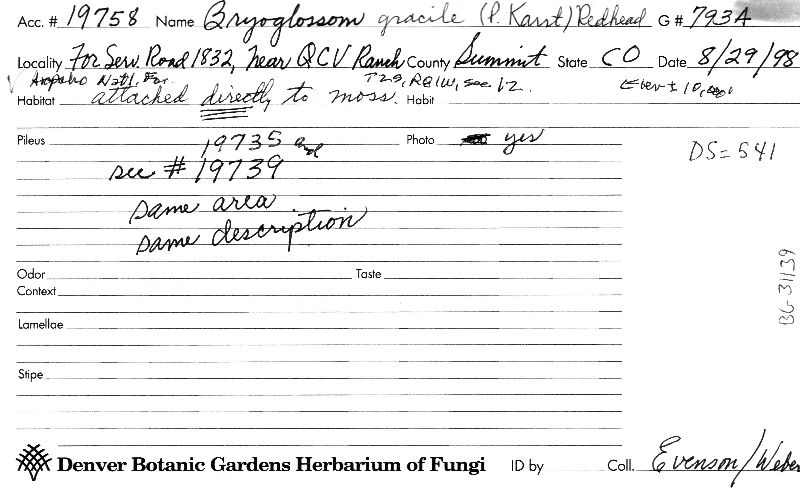 Acc. # 19758 Name Bryoglossom gracile (P. Karst) Redhead G # 7934
Locality For Serv. Road 1832, near QCV Ranch County Summit State CO Date 8/29/98
Arapaho Natl. For. T2S, R81W, sec. 12. Elev ± 10,000
Habitat attached directly to moss. Habit
Pileus 19735 and Photo yes
see # 19739 DS=541
same area
same description
Odor Taste
Context
BG 31139
Lamellae
Stipe
Denver Botanic Gardens Herbarium of Fungi ID by Coll. Evenson/Weber